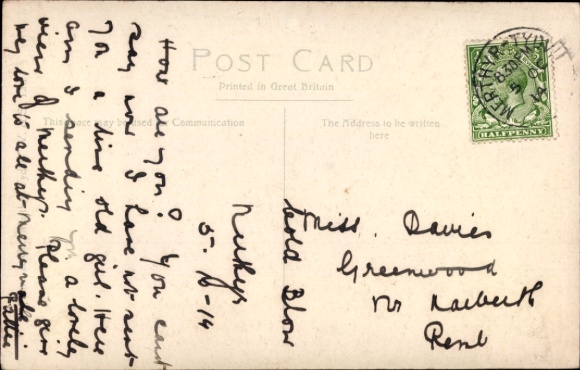 POST CARD
Printed in Great Britain
This space may be used for Communication
The Address to be written
here
MERTHYR-TYDFIL
830P
5 O
14
HALFPENNY
Merthyr
5-10-14
How are you? You cant
say now I have not sent
you a line old girl. Here
am I sending you a lovely
view of Merthyr. Please give
my love to all at
Cold Blow
Miss. Davies
Greenwood
Nr Narberth
Pemb